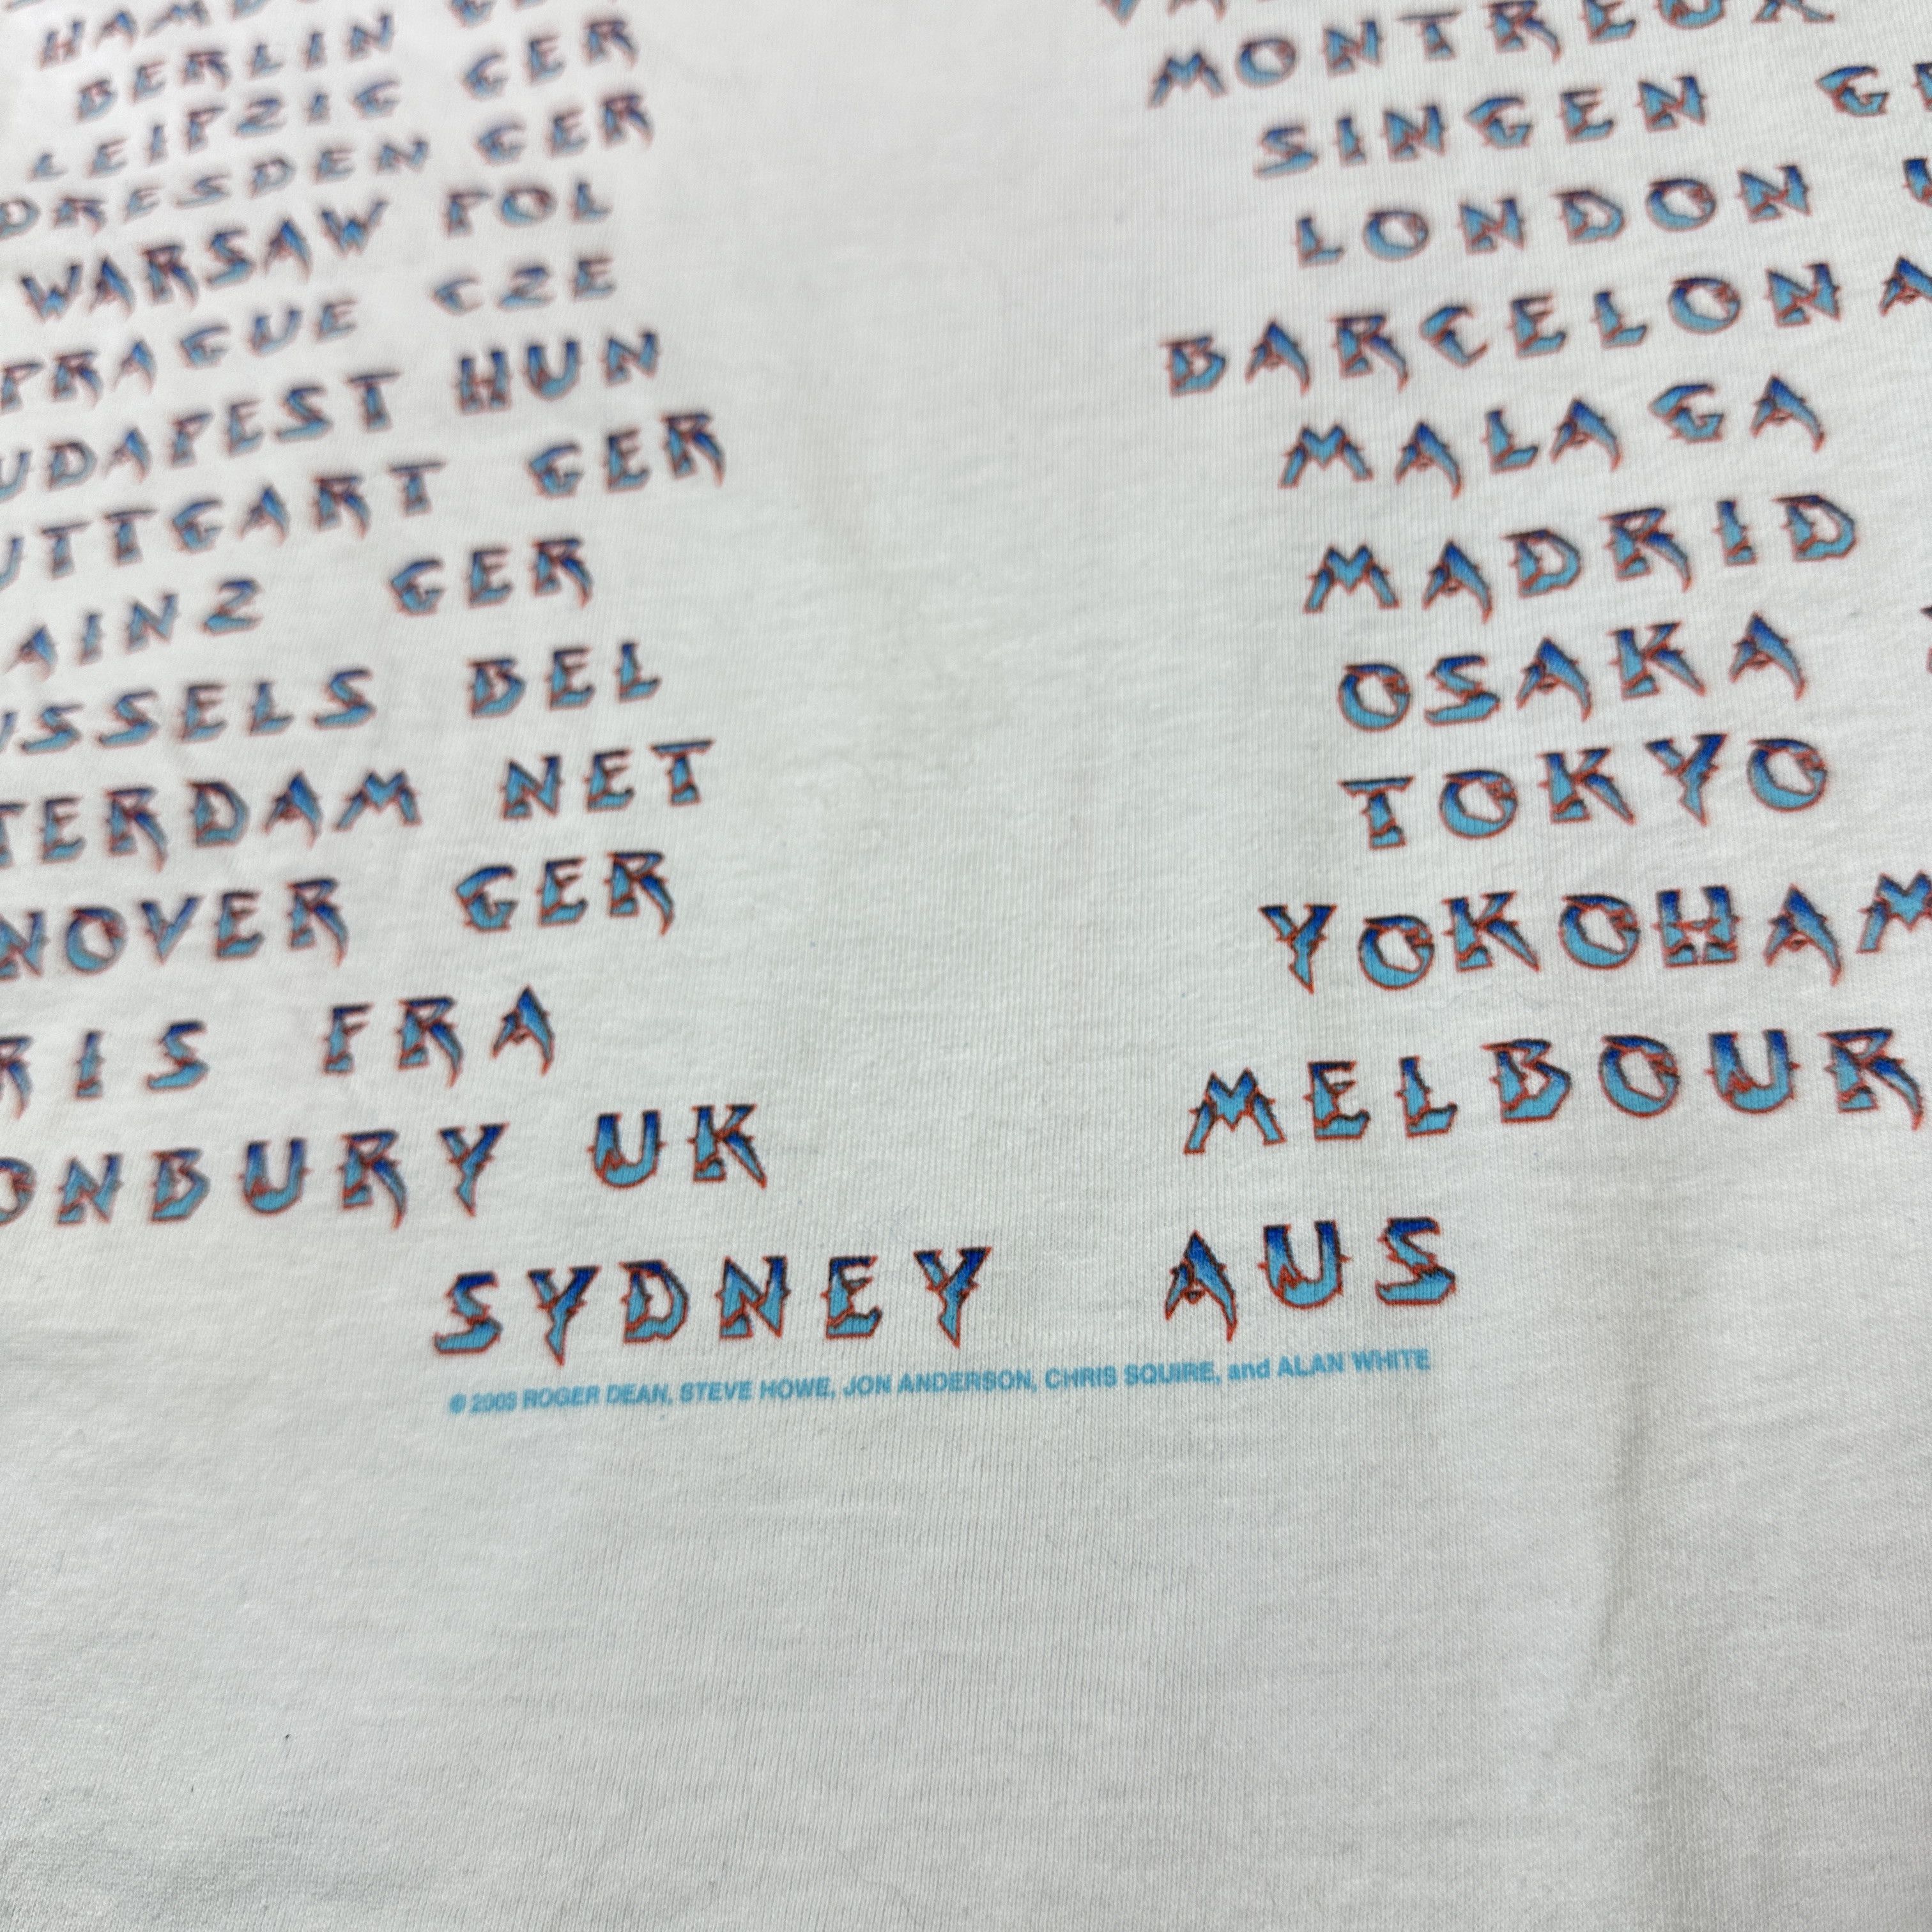 BERLIN
LEIPZIG GER
DRESDEN GER
WARSAW POL
PRAGUE CZE
UDAPEST HUN
UTTGART GER
AINZ GER
USSELS BEL
TERDAM NET
NOVER GER
RIS FRA
ONBURY UK
MONTREUX
SINGEN GE
LONDON U
BARCELONA
MALAGA
MADRID
OSAKA
TOKYO
YOKOHAM
MELBOUR
SYDNEY AUS
© 2003 ROGER DEAN, STEVE HOWE, JON ANDERSON, CHRIS SQUIRE, and ALAN WHITE